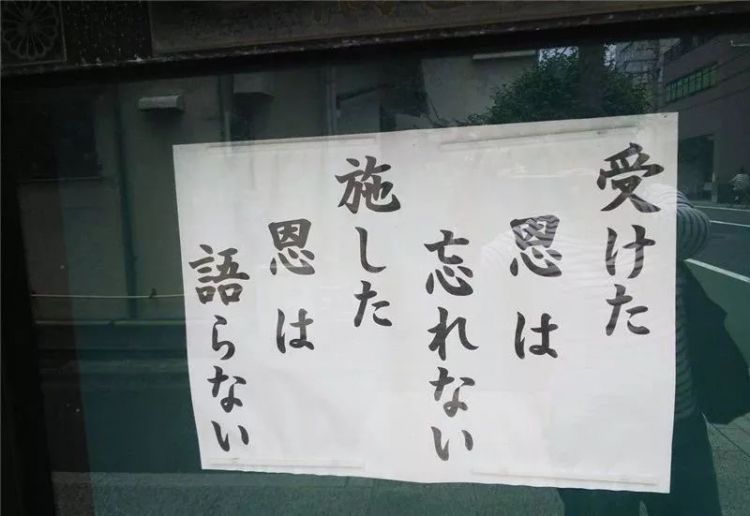 受けた
恩は
忘れない
施した
恩は
語らない